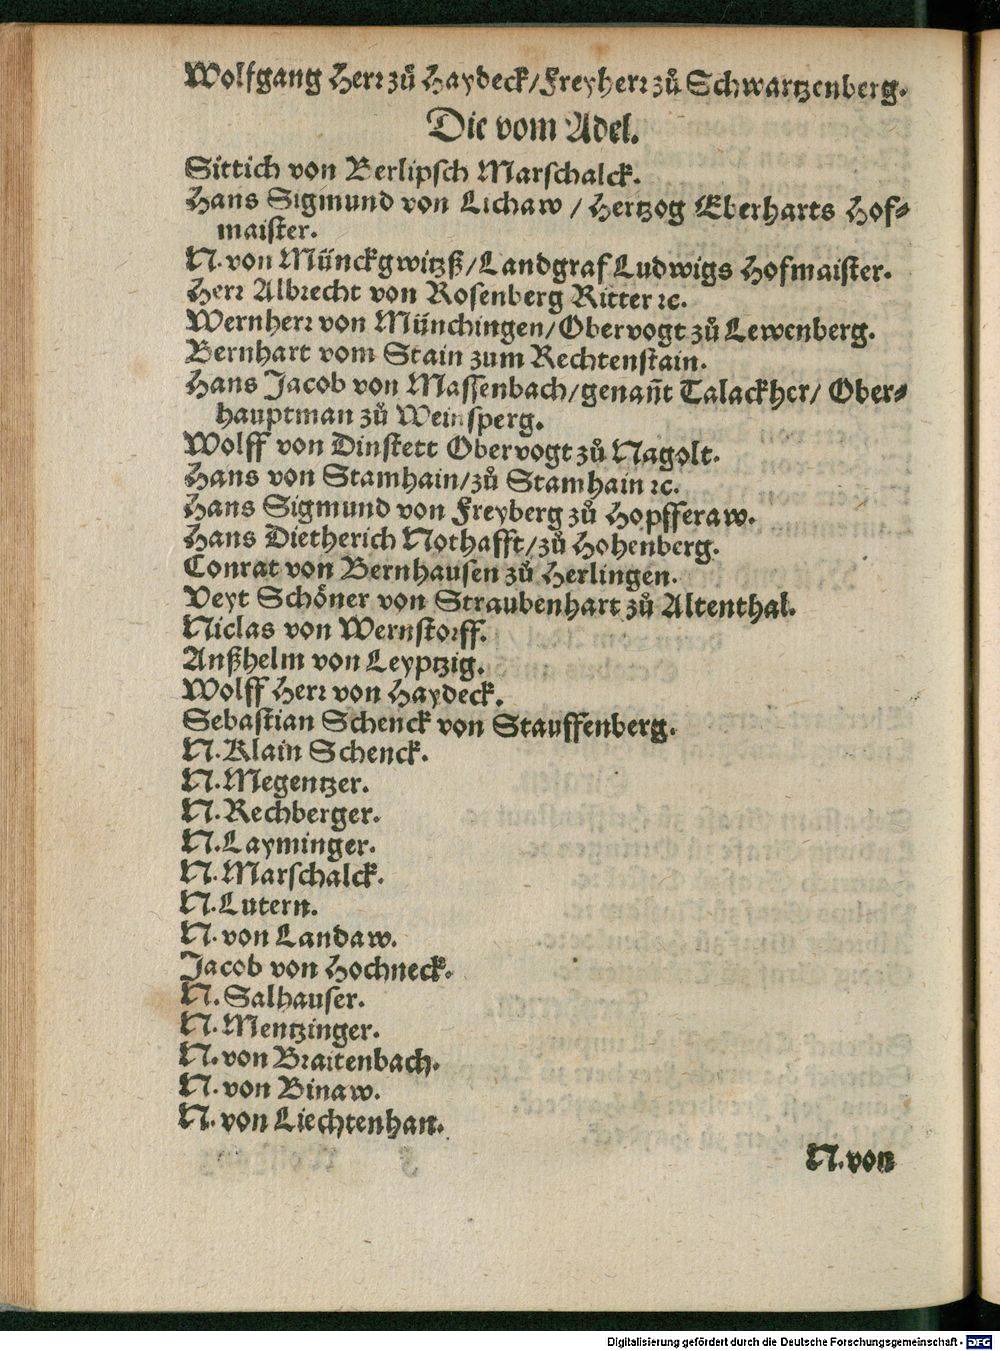 Wolfgang Herr zů Haydeck/Freyherr zů Schwartzenberg.
Die vom Adel.
Sittich von Berlipsch Marschalck.
Hans Sigmund von Lichaw / Hertzog Eberharts Hof⸗
maister.
N. von Münckgwitzß/Landgraf Ludwigs Hofmaister.
Herr Albrecht von Rosenberg Ritter ꝛc.
Wernherr von Münchingen/Obervogt zů Lewenberg.
Bernhart vom Stain zum Rechtenstain.
Hans Jacob von Massenbach/genañt Talackher/ Ober⸗
hauptman zů Weinsperg.
Wolff von Dinstett Obervogt zů Nagolt.
Hans von Stamhain/zů Stamhain ꝛc.
Hans Sigmund von Freyberg zů Hopfferaw.
Hans Dietherich Nothafft/zů Hohenberg.
Conrat von Bernhausen zů Herlingen.
Veyt Schöner von Straubenhart zů Altenthal.
Niclas von Wernstorff.
Anßhelm von Leyptzig.
Wolff Herr von Haydeck.
Sebastian Schenck von Stauffenberg.
N. Klain Schenck.
N. Megentzer.
N. Rechberger.
N. Layminger.
N. Marschalck.
N. Lutern.
N. von Landaw.
Jacob von Hochneck.
N. Salhauser.
N. Mentzinger.
N. von Braitenbach.
N. von Binaw.
N. von Liechtenhan.
N. von
Digitalisierung gefördert durch die Deutsche Forschungsgemeinschaft - DFG